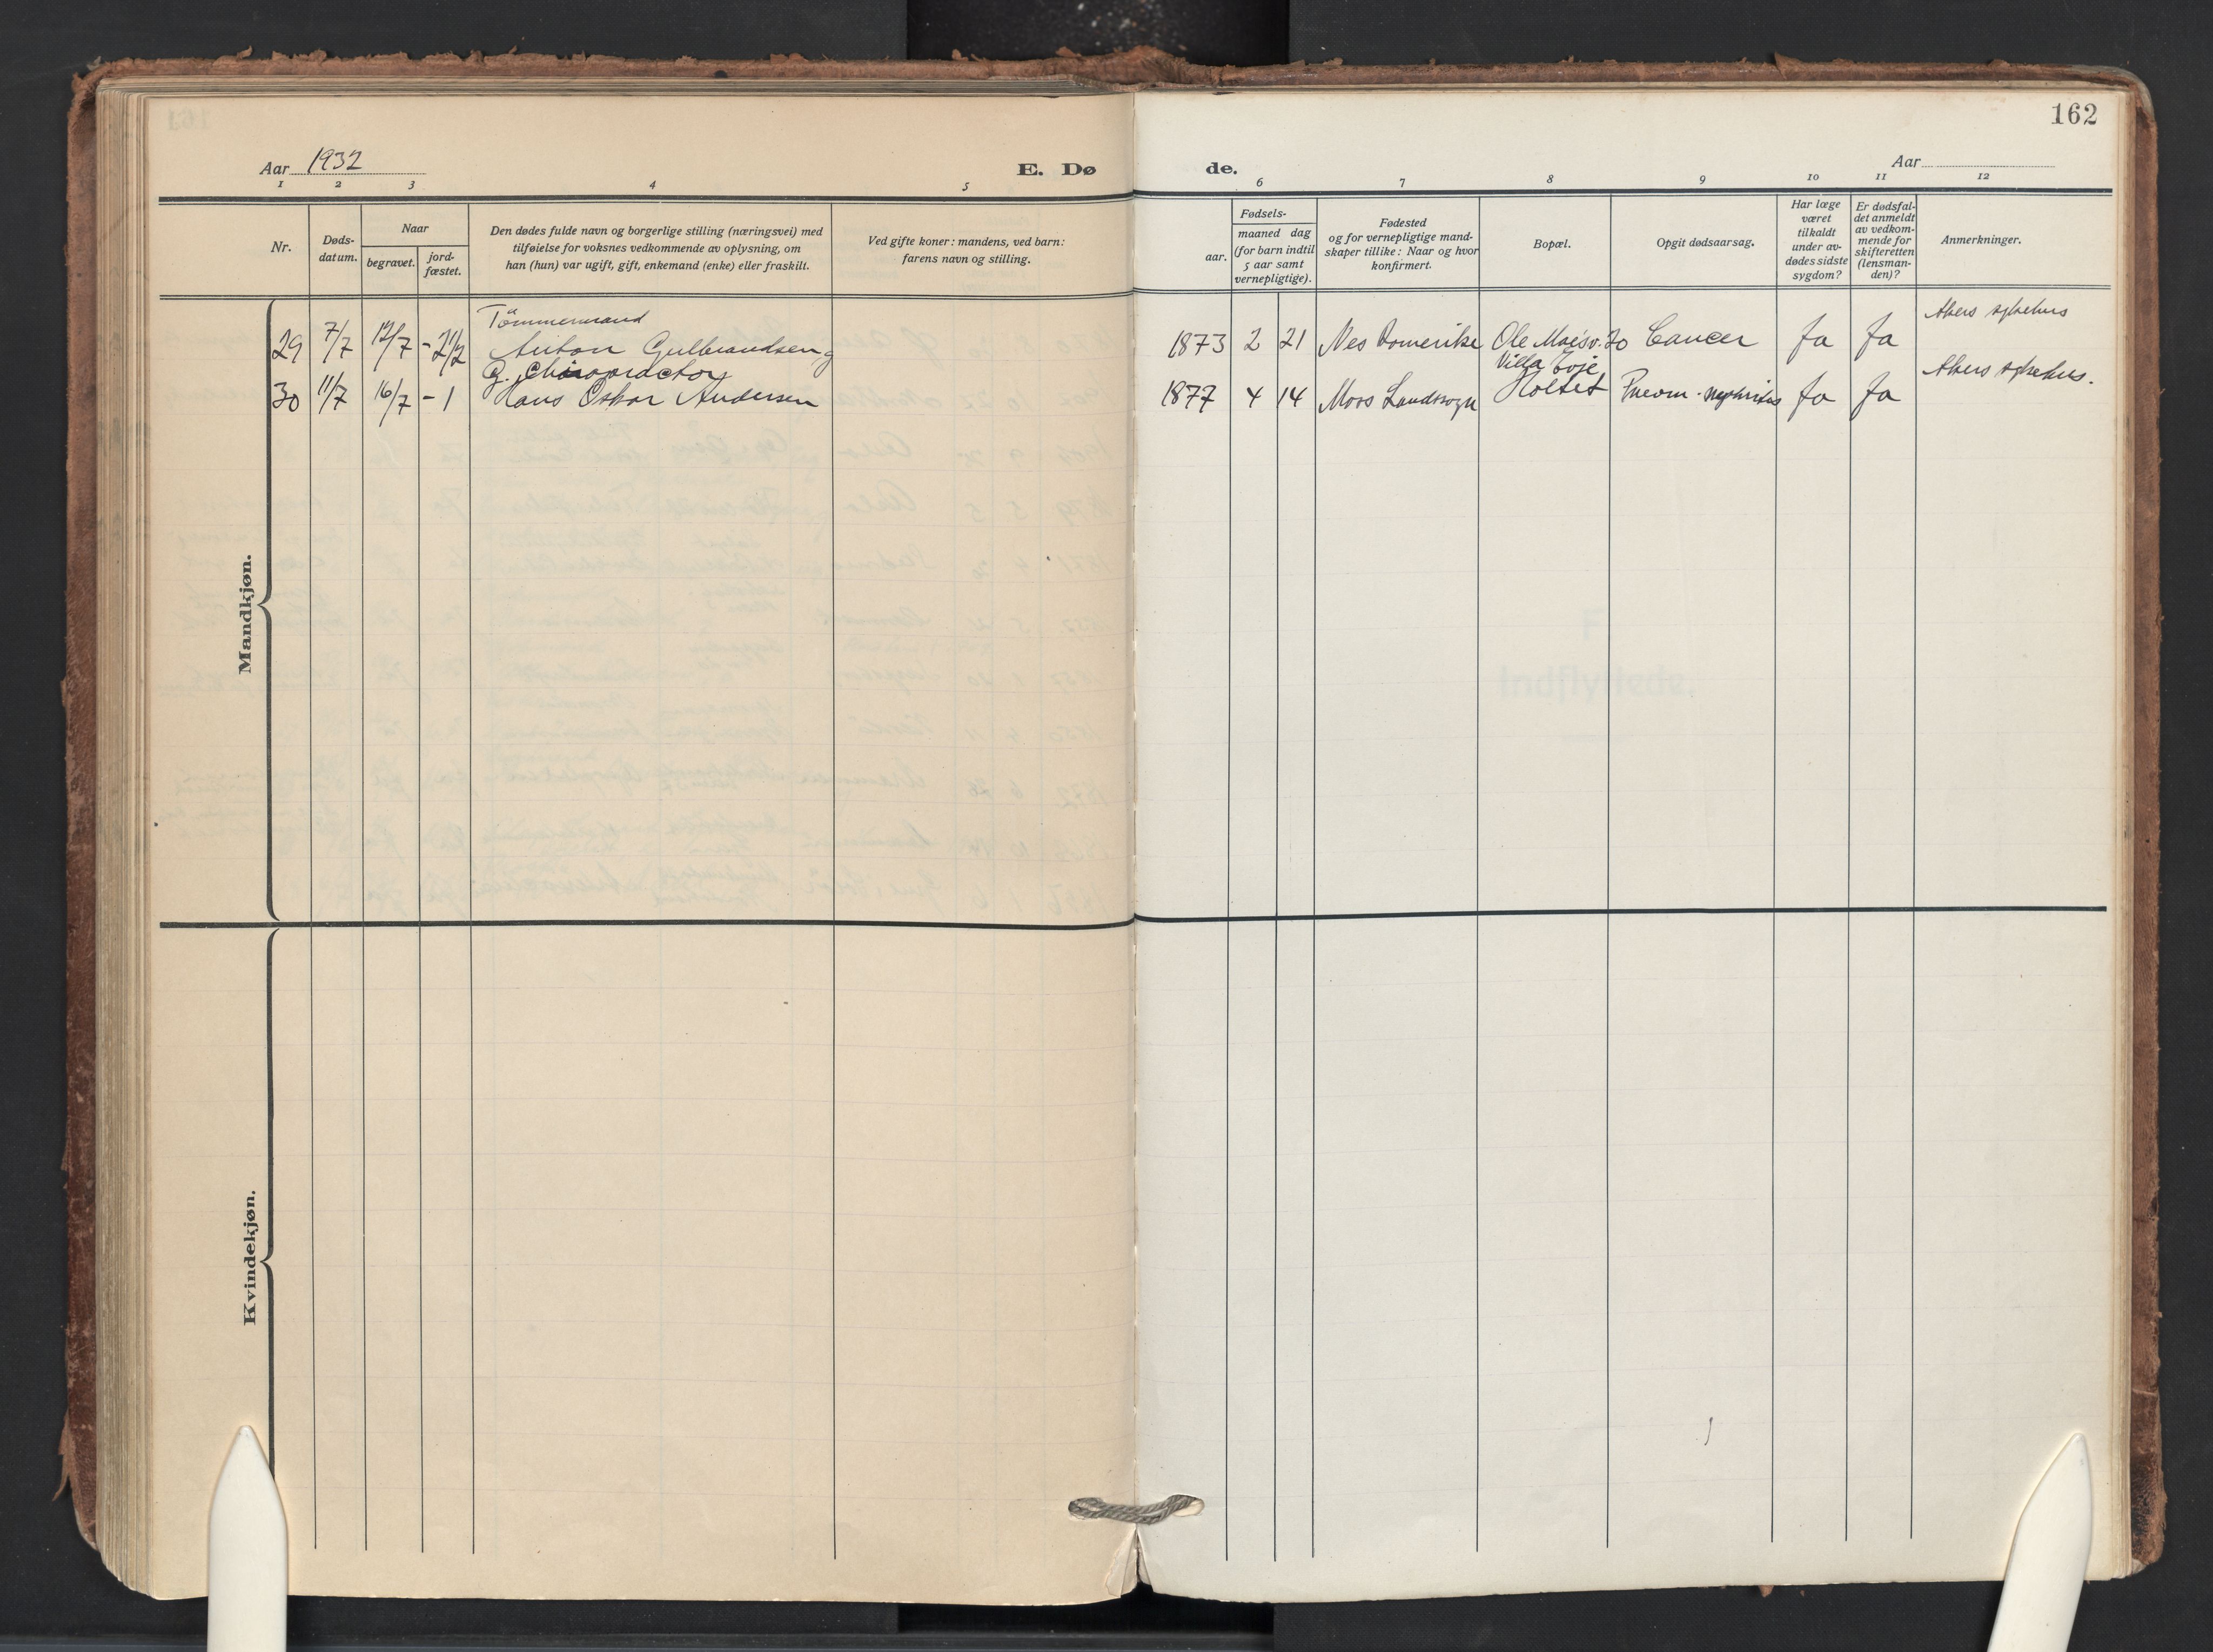 162
Aar 1932
E. Dø
de.
Aar
1 2 3 4 5
6 7 8 9 10 11 12
Nr.
Døds-
datum.
Naar
begravet.
jord-
fæstet.
Den dødes fulde navn og borgerlige stilling (næringsvei) med
tilføielse for voksnes vedkommende av oplysning, om
han (hun) var ugift, gift, enkemand (enke) eller fraskilt.
Ved gifte koner: mandens, ved barn:
farens navn og stilling.
Fødsels-
aar.
maaned dag
(for barn indtil
5 aar samt
vernepligtige).
Fødested
og for vernepligtige mand-
skaper tillike: Naar og hvor
konfirmert.
Bopæl.
Opgit dødsaarsag.
Har læge
været
tilkaldt
under av-
dødes sidste
sygdom?
Er dødsfal-
det anmeldt
av vedkom-
mende for
skifteretten
(lensman-
den)?
Anmerkninger.
Mandkjøn.
Tömmermand Akers sykehus
29 7/7 12/7 - 2 1/2 Anton Gulbrandsen g 1873 2 21 Nes Romerike Ole Moesv. 20 Cancer Ja Ja
G. Chiropractor Villa Evje Akers sykehus.
30 11/7 16/7 - 1 Hans Oskar Andersen 1877 4 14 Moss Landssogn Holtet Pneum - nephritis Ja Ja
Kvindekjøn.